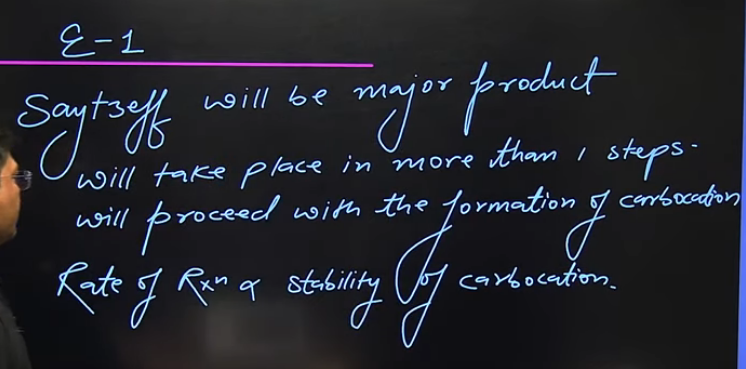 E-1
Saytzeff will be major product
will take place in more than 1 steps.
will proceed with the formation of carbocation
Rate of Rxn ∝ stability of carbocation.